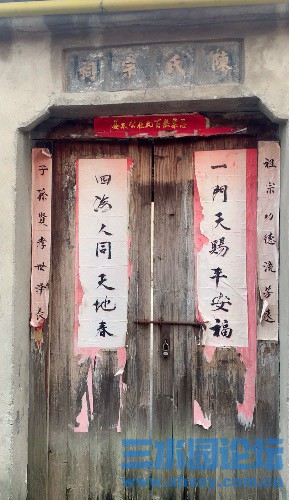 陳氏宗祠
祖宗功德流芳遠
一門天賜平安福
四海人同天地春
子孫賢孝世澤長
论坛